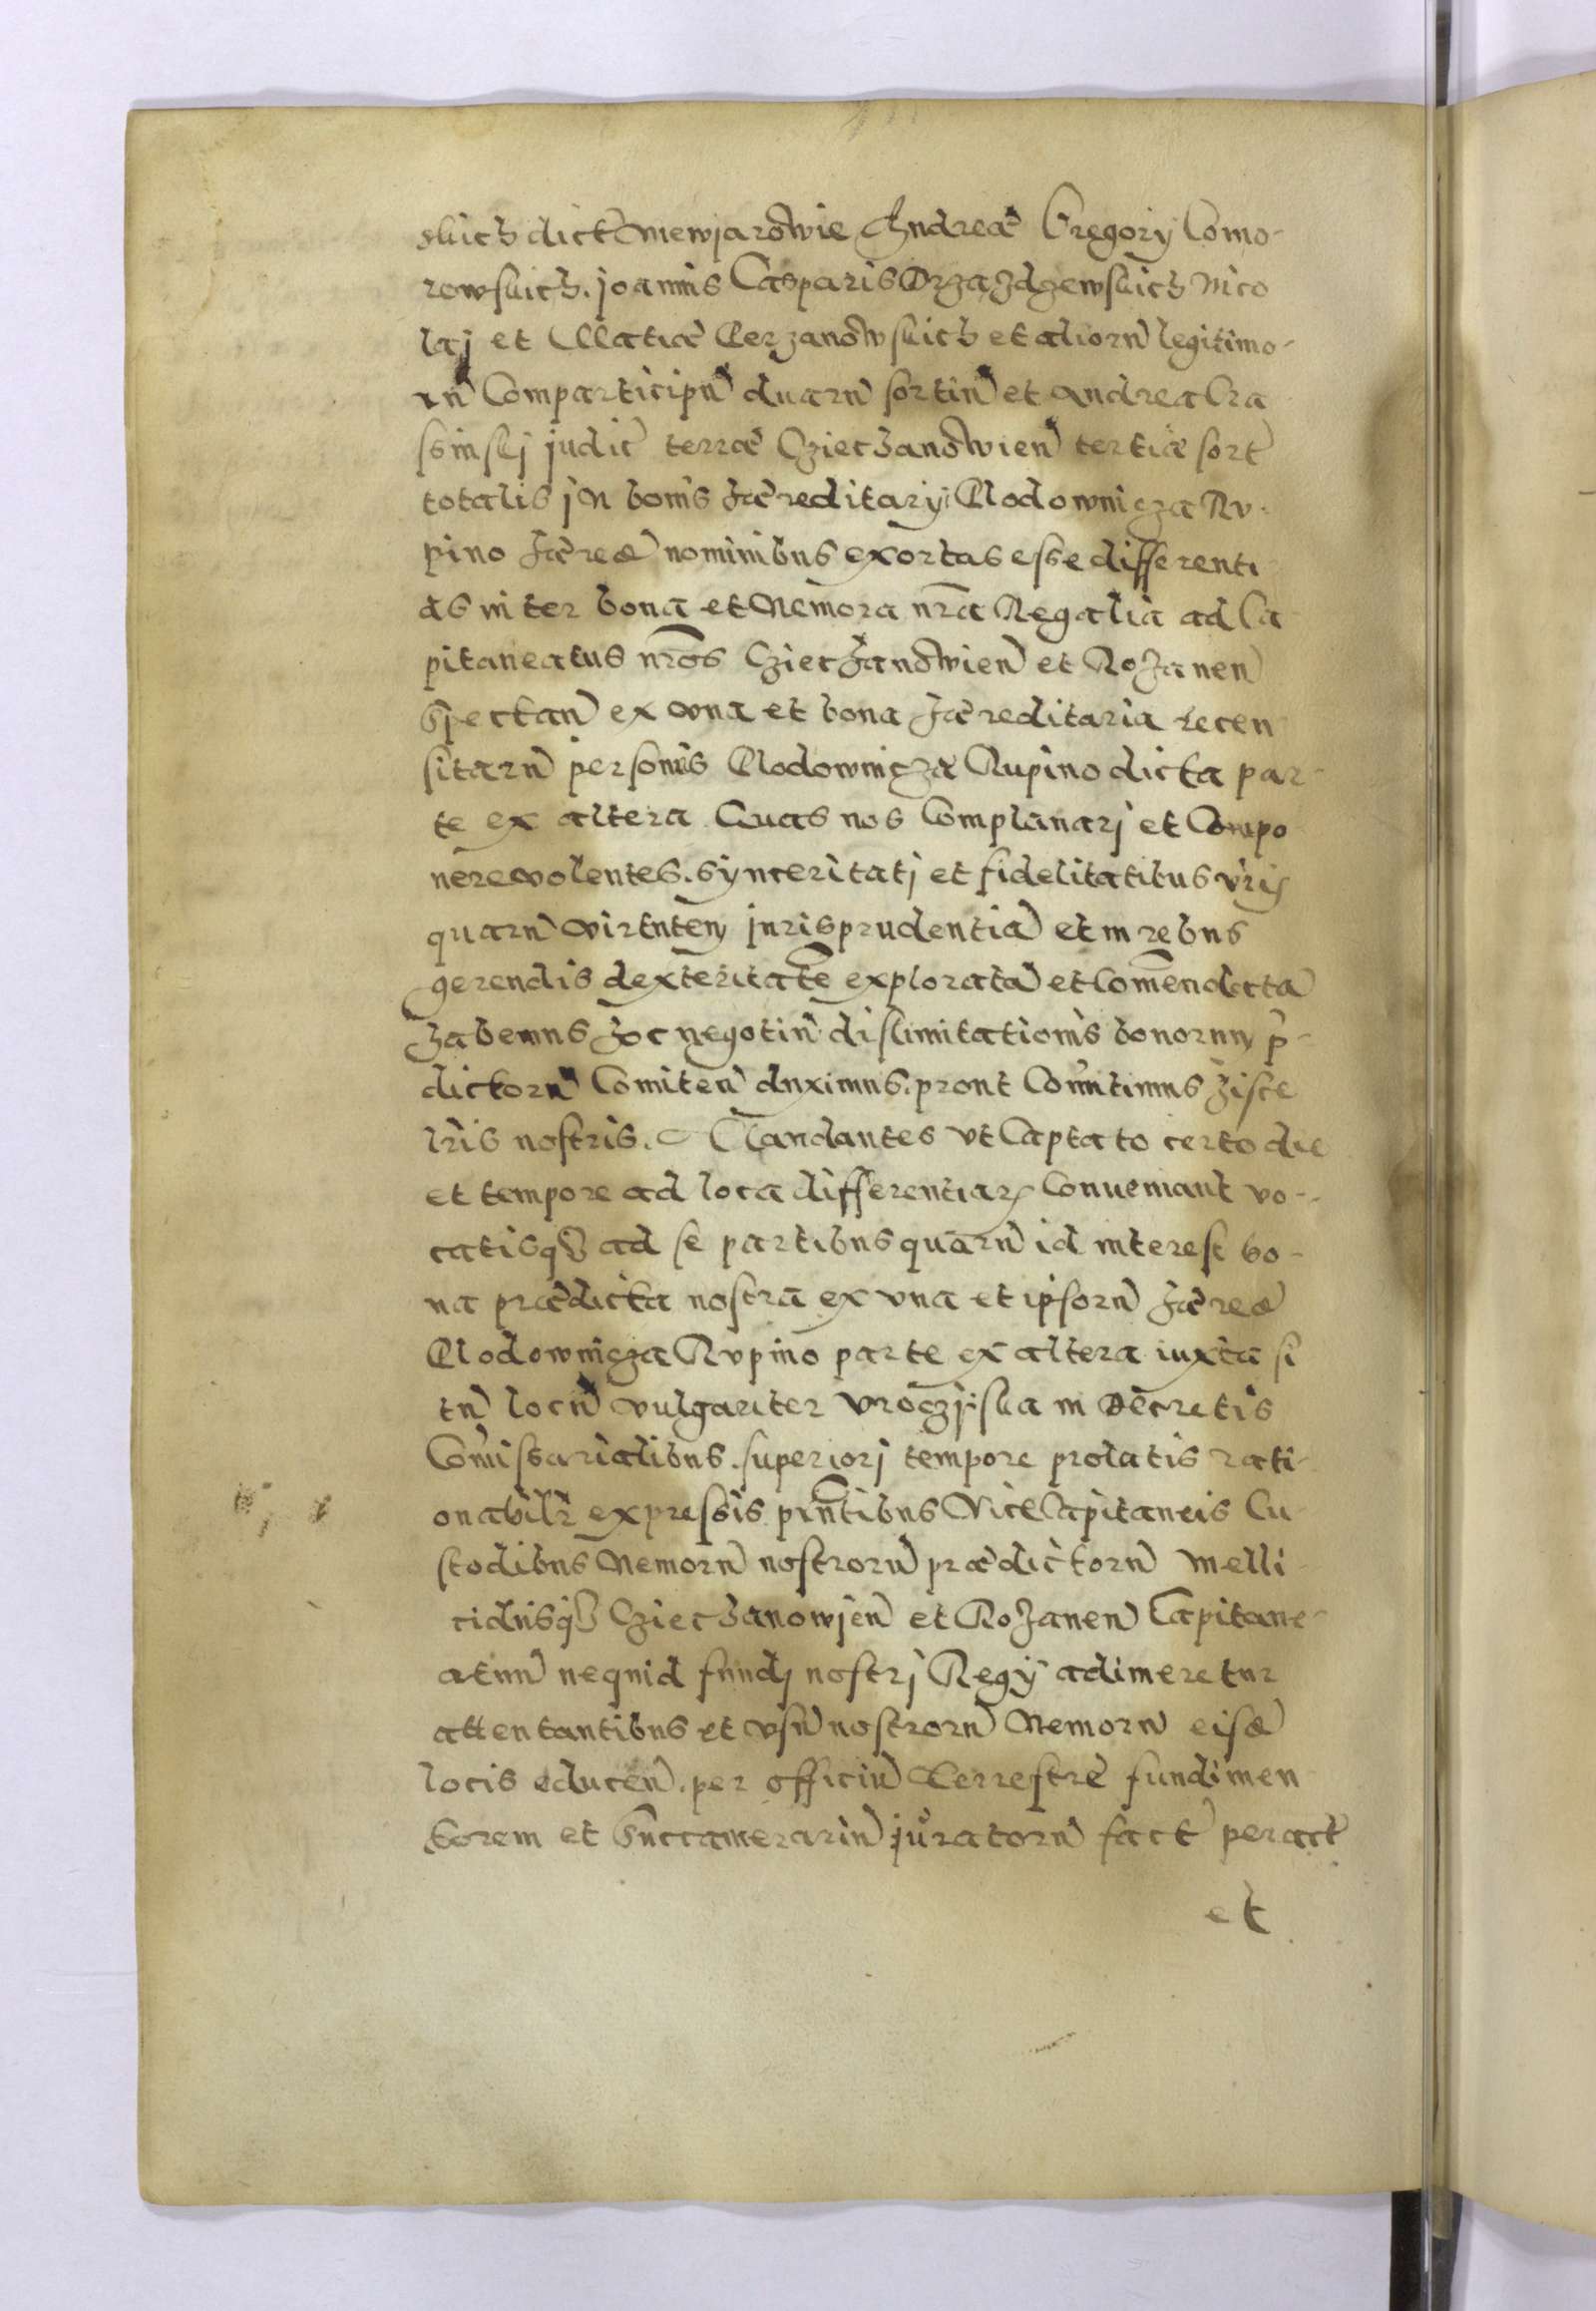 skich dict Mewjarowie Andreæ Gregorij Como-
rowskich. joannis Casparis Drzazdzewskich Nico
laj et Mathiæ Gerzanowskich et aliorū legitimo-
rū Comparticipū duarū sortiū et Andrea Cra
ssinskj judic terræ Cziechanowien tertiæ sort
totalis jn bonis hæreditarij Clodownicza Ru-
pino hæred nominibus exortas esse differenti
as inter bona et Nemora nr̄a Regalia ad Ca
pitaneatus nr̄os Cziechanowien et Rozanen
Spectan ex vna et bona hæreditaria recen
sitarū personis Clodownicza Rupino dicta par-
te ex altera Quas nos Complanarj et Compo
nere volentes. synceritatj et fidelitatibus vr̄is
quarū virtutem jurisprudentiā et in rebus
gerendis dexteritatē exploratā et Comendatā
habemus hoc negotiū dislimitationis bonorum p̄-
dictorū Comiten duximus. prout Com̄itimus hisce
lr̄is nostris. Mandantes vt Captato certo die
et tempore ad loca differentiarꝝ Conueniant vo-
catisqꝫ ad se partibus quarū id interest bo-
na prædicta nostra ex vna et ipsorū hæred
Clodownicza Rvpino parte ex altera iuxta si
tū locū vulgariter vroczijska in Decretis
Com̄issarialibus. superiorj tempore prolatis rati-
onabilr̄ expressis. pn̄tibus ViceCapitaneis Cu-
stodibus Nemorū nostrorū prædictorū Melli-
cidiisqꝫ Cziechanowjen et Rozanen Capitane-
atuū nequid fundj nostrj Regij adimeretur
attentantibus et vsū nostrorū Nemorū eisd
locis educen. per officiū terrestrē fundi men
sorem et Succamerariū juratorū fact peract
et